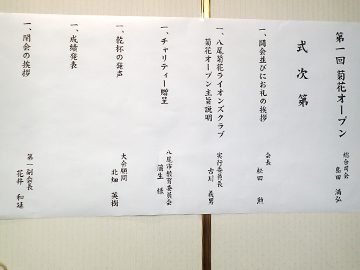 第一回 菊花オープン
総合司会 島田 満弘
式次第
一、開会並びにお礼の挨拶
会長 松田 勲
一、八尾菊花ライオンズクラブ
菊花オープン主旨説明
実行委員長 古川 義男
一、チャリティー贈呈
八尾市教育委員会 蒲生 様
一、乾杯の発声
大会顧問 北畑 英樹
一、成績発表
一、閉会の挨拶
第一副会長 花井 和雄